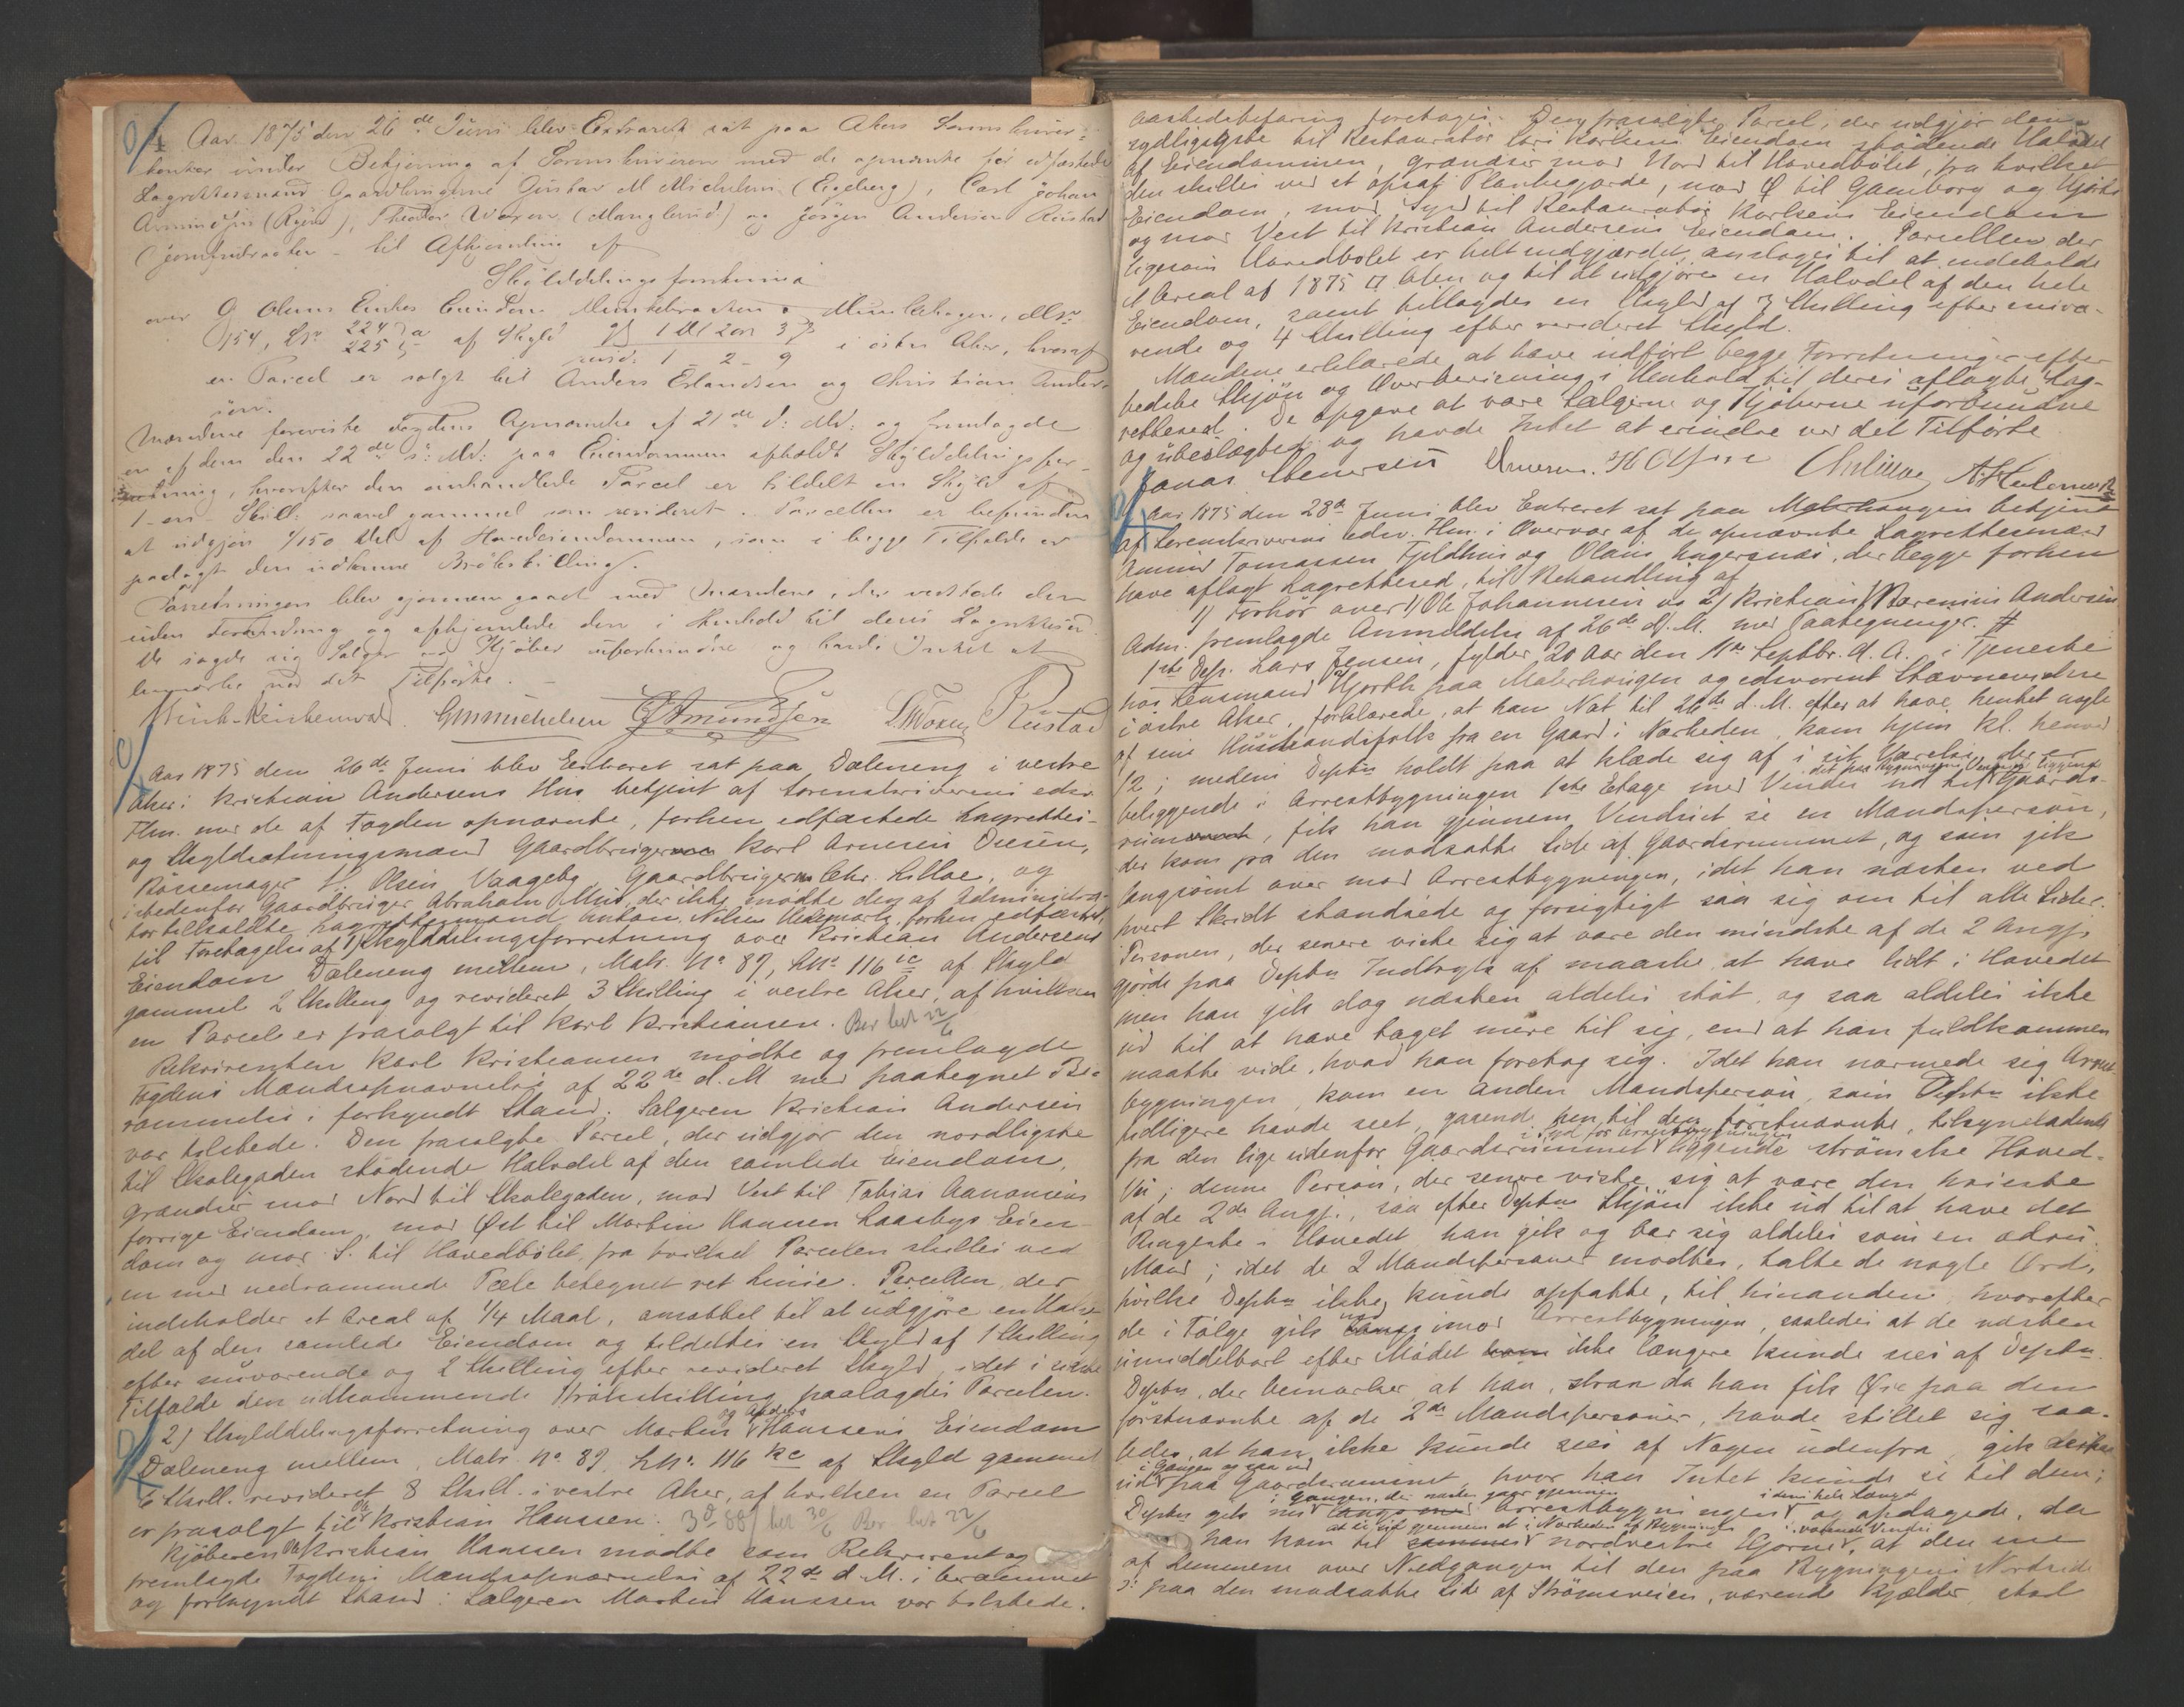 Aar 1875 den 26de Juni blev Extraret sat paa Akers Sorenskriver-
kontor under Betjening af Sorenskriveren med de opnævnte før edfæstede
Lagrettesmænd Gaardbrugerne Gustav M Michelsen (Egeberg), Carl Johan
Amundsen (Ryen), Theodor Woxen (Manglerud) og Jörgen Andersen Rustad
til Afhjemling af
Skylddelingsforretning
over O Olsens Enkes Eiendom Munkebraaten Munkehagen, Mno
154, Lno 224 a 225 a af Skyld gl 1 Ort 3 ß
revid: 1 - 2 - 9 i östre Aker, hvoraf
en Parcel er solgt til Anders Erlandsen og Christian Ander-
sen.
Mændene foreviste Fogdens Opnævnelse af 21de d: Md: og fremlagde
en af dem den 22de s: Md: paa Eiendommen afholdt Skylddelingsfor-
retning, hvorefter den omhandlede Parcel er tildelt en Skyld af
1 - en - Skill: saavel gammel som revideret. Parcellen er befunden
at udgjøre 1/150 Del af Hovedeiendommen, som i begge Tilfælde er
paalagt den udkomne Brökskilling.
Forretningen blev gjennemgaaet med Mændene, der vedtoge den
uden Forandring og afhjemlede den i Henhold til deres Lagretteed.
De sagde sig Sælger og Kjöber uforbundne og havde Intet at
bemærke ved det Tilførte.
Munch-Reichenwald. GMMichelsen CJAmundsen ThWoxen JRustad
Aar 1875 den 26de Juni blev Extraret sat paa Dæleneng i vestre
Aker i Kristian Andersens Hus betjent af Sorenskriverens edsv
Fm. med de af Fogden opnævnte, forhen edfæstede Lagrettes-
og Skyldsætningsmænd Gaardbruger Karl Arnesen Duesen,
Bössemager H. Olsen Vaageby, Gaardbruger Chr. Lilloe, og
istedenfor Gaardbruger Abraham Mus, der ikke mödte den af Administra-
tor tilkaldte Lagrettesmand Anton Nilsen Hedemark, forhen edfæstet,
til Foretagelse af 1) Skylddelingsforretning over Kristian Andersens
Eiendom Dæleneng mellem, Matr. No 87, Lno. 116 ic af Skyld
gammel 2 Skilling og revideret 3 Skilling i vestre Aker, af hvilken
en Parcel er frasolgt til Karl Kristiansen. Ber bet 22/6
Rekvirenten Karl Kristiansen mödte og fremlagde
Fogdens Mandsopnævnelse af 22de d. M med paategnet Be-
rammelse i forkyndt Stand. Sælgeren Kristian Andersen
var tilstede. Den frasolgte Parcel, der udgjør den nordligste
til Skolegaden stödende Halvdel af den samlede Eiendom,
grændser mod Nord til Skolegaden, mod Vest til Tobias Aanonsens
forrige Eiendom, mod Øst til Martin Hansen Laasbys Eien-
dom og mod S. til Hovedbölet, fra hvilket Parcelen skilles ved
en med nedrammede Pæle betegnet ret Linie. Parcellen, der
indeholder et Areal af 1/4 Maal, ansattes til at udgjöre en Halv-
del af den samlede Eiendom og tildeltes en Skyld af 1 Skilling
efter nuværende og 2 Skilling efter revideret Skyld, idet i sidste
Tilfælde den udkommende Brökskilling paalagdes Parcelen.
2) Skylddelingsforretning over Martin og Anders Hansens Eiendom
Dæleneng mellem, Matr. No. 87, Lno. 116 kc af Skyld gammel
6 Skill. revideret 8 Skill. i vestre Aker, af hvilken en Parcel
er frasolgt til Ole Kristian Hanssen. bet 30/6 Ber bet 22/6
Kjöberen Ole Kristian Hanssen mödte som Rekvirent og
fremlagde Fogdens Mandsopnævnelse af 22de d M. i berammet
og forkyndt Stand. Sælgeren Martin Hanssen var tilstede.
Aastedsbefaring foretoges. Den frasolgte Parcel, der udgjør den
sydligste til Restauratör Karlsens Eiendom stödende Halvdel
af Eiendommen, grændser mod Nord til Hovedbölet, fra hvilket
den skilles ved et opsat Plankegjærde, mod Ø til Gamborg og Hjorts
Eiendom, mod Syd til Restauratör Karlsens Eiendom
og mod Vest til Kristian Andersens Eiendom. Parcellen, der
ligesom Hovedbölet er helt indgjærdet, ansloges til at indeholde
et Areal af 1875 □ Alen og til at udgjöre en Halvdel af den hele
Eiendom, samt tillagdes en Skyld af 3 Skilling efter nuvæ-
rende og 4 Skilling efter revideret Skyld.
Mændene erklærede at have udført begge Forretninger efter
bedste Skjön og Overbevisning i Henhold til deres aflagte Lag-
retteed. De opgave at være Sælgerne og Kjöberne uforbundne
og ubeslægtede og havde Intet at erindre ved det Tilførte
Jonas Stenersen HOlsen ChrLilloe
Aar 1875 den 28de Juni blev Extraret sat paa Malerhaugen betjent
af Sorenskriverens edsv. Fm. i Overvær af de opnævnte Lagrettesmænd
Amund Tomassen Fjeldhus og Olaus Hagersnæs, der begge forhen
have aflagt Lagretteseed, til Behandling af
1) Forhör over 1) Ole Johannesen og 2) Kristian Berenius Andersen
Adm. fremlagde Anmeldelse af 26de d. M. med Paategninger. #
1ste Dep. Lars Jensen, fylder 20 Aar den 11te Septbr. d. A. i Tjeneste
hos Lensmand Hjorth paa Malerhaugen og edsvorent Stævnevidne
i østre Aker, forklarede, at han Nat til 26de d. M. efter at have hentet nogle
af sine Husbondsfolk fra en Gaard i Nærheden, kom hjem Kl. henved
12; medens Deptn holdt paa at klæde sig af i sit Værelse, der er
beliggende i Arrestbygningen 1ste Etage med Vindu ud til det paa Bygningens Vestside liggende Gaards-
rum, fik han gjennem Vinduet se en Mandsperson,
der kom fra den modsatte Side af Gaardsrummet, og som gik
langsomt over mod Arrestbygningen, idet han næsten ved
hvert Skridt standsede og forsigtigt saa sig om til alle Sider.
Personen, der senere viste sig at være den mindste af de 2 Angj.
gjorde paa Deptn Indtryk af maaske at have lidt i Hovedet
men han gik dog næsten aldeles støt, og saa aldeles ikke
ud til at have taget mere til sig, end at han fuldkommen
maatte vide, hvad han foretog sig. Idet han nærmede sig Arrest-
bygningen, kom en anden Mandsperson, som Deptn ikke
tidligere havde seet, gaaende hen til den förstnævnte, tilsyneladende
fra den lige udenfor Gaardsrummet i Syd for Arrestbygningen liggende strömske Hoved-
vei; denne Person, der senere viste sig at være den höieste
af de 2de Angj., saa efter Deptns Skjön ikke ud til at have det
Ringeste i Hovedet, han gik og bar sig aldeles som en ædru
Mand; idet de 2 Mandspersoner mødtes, talte de nogle Ord,
hvilke Deptn ikke kunde opfatte, til hinanden, hvorefter
de i Fölge gik ned imod Arrestbygningen, saaledes at de næsten
umiddelbart efter Mödet ikke længere kunde sees af Deptn.
Deptn, der bemærker at han, straa da han fik Öie paa den
förstnævnte af de 2de Mandspersoner, havde stillet sig saa-
ledes, at han ikke kunde sees af Nogen udenfra, gik derpaa
ud i Gangen og saa ud paa Gaardsrummet, hvor han Intet kunde se til dem;
Deptn gik ned i Gangen, der næsten gaar gjennem Arrestbygningen i dens hele Længde og opdagede, da
han kom til nordvestre Hjørne, at se ud gjennem et i Nærheden af Bygningen værende Vindu, at den ene
af Lemmene over Nedgangen til den paa Bygningens Nordside
ɔ: paa den modsatte Side af Strömsveien, værende Kjelder, stod